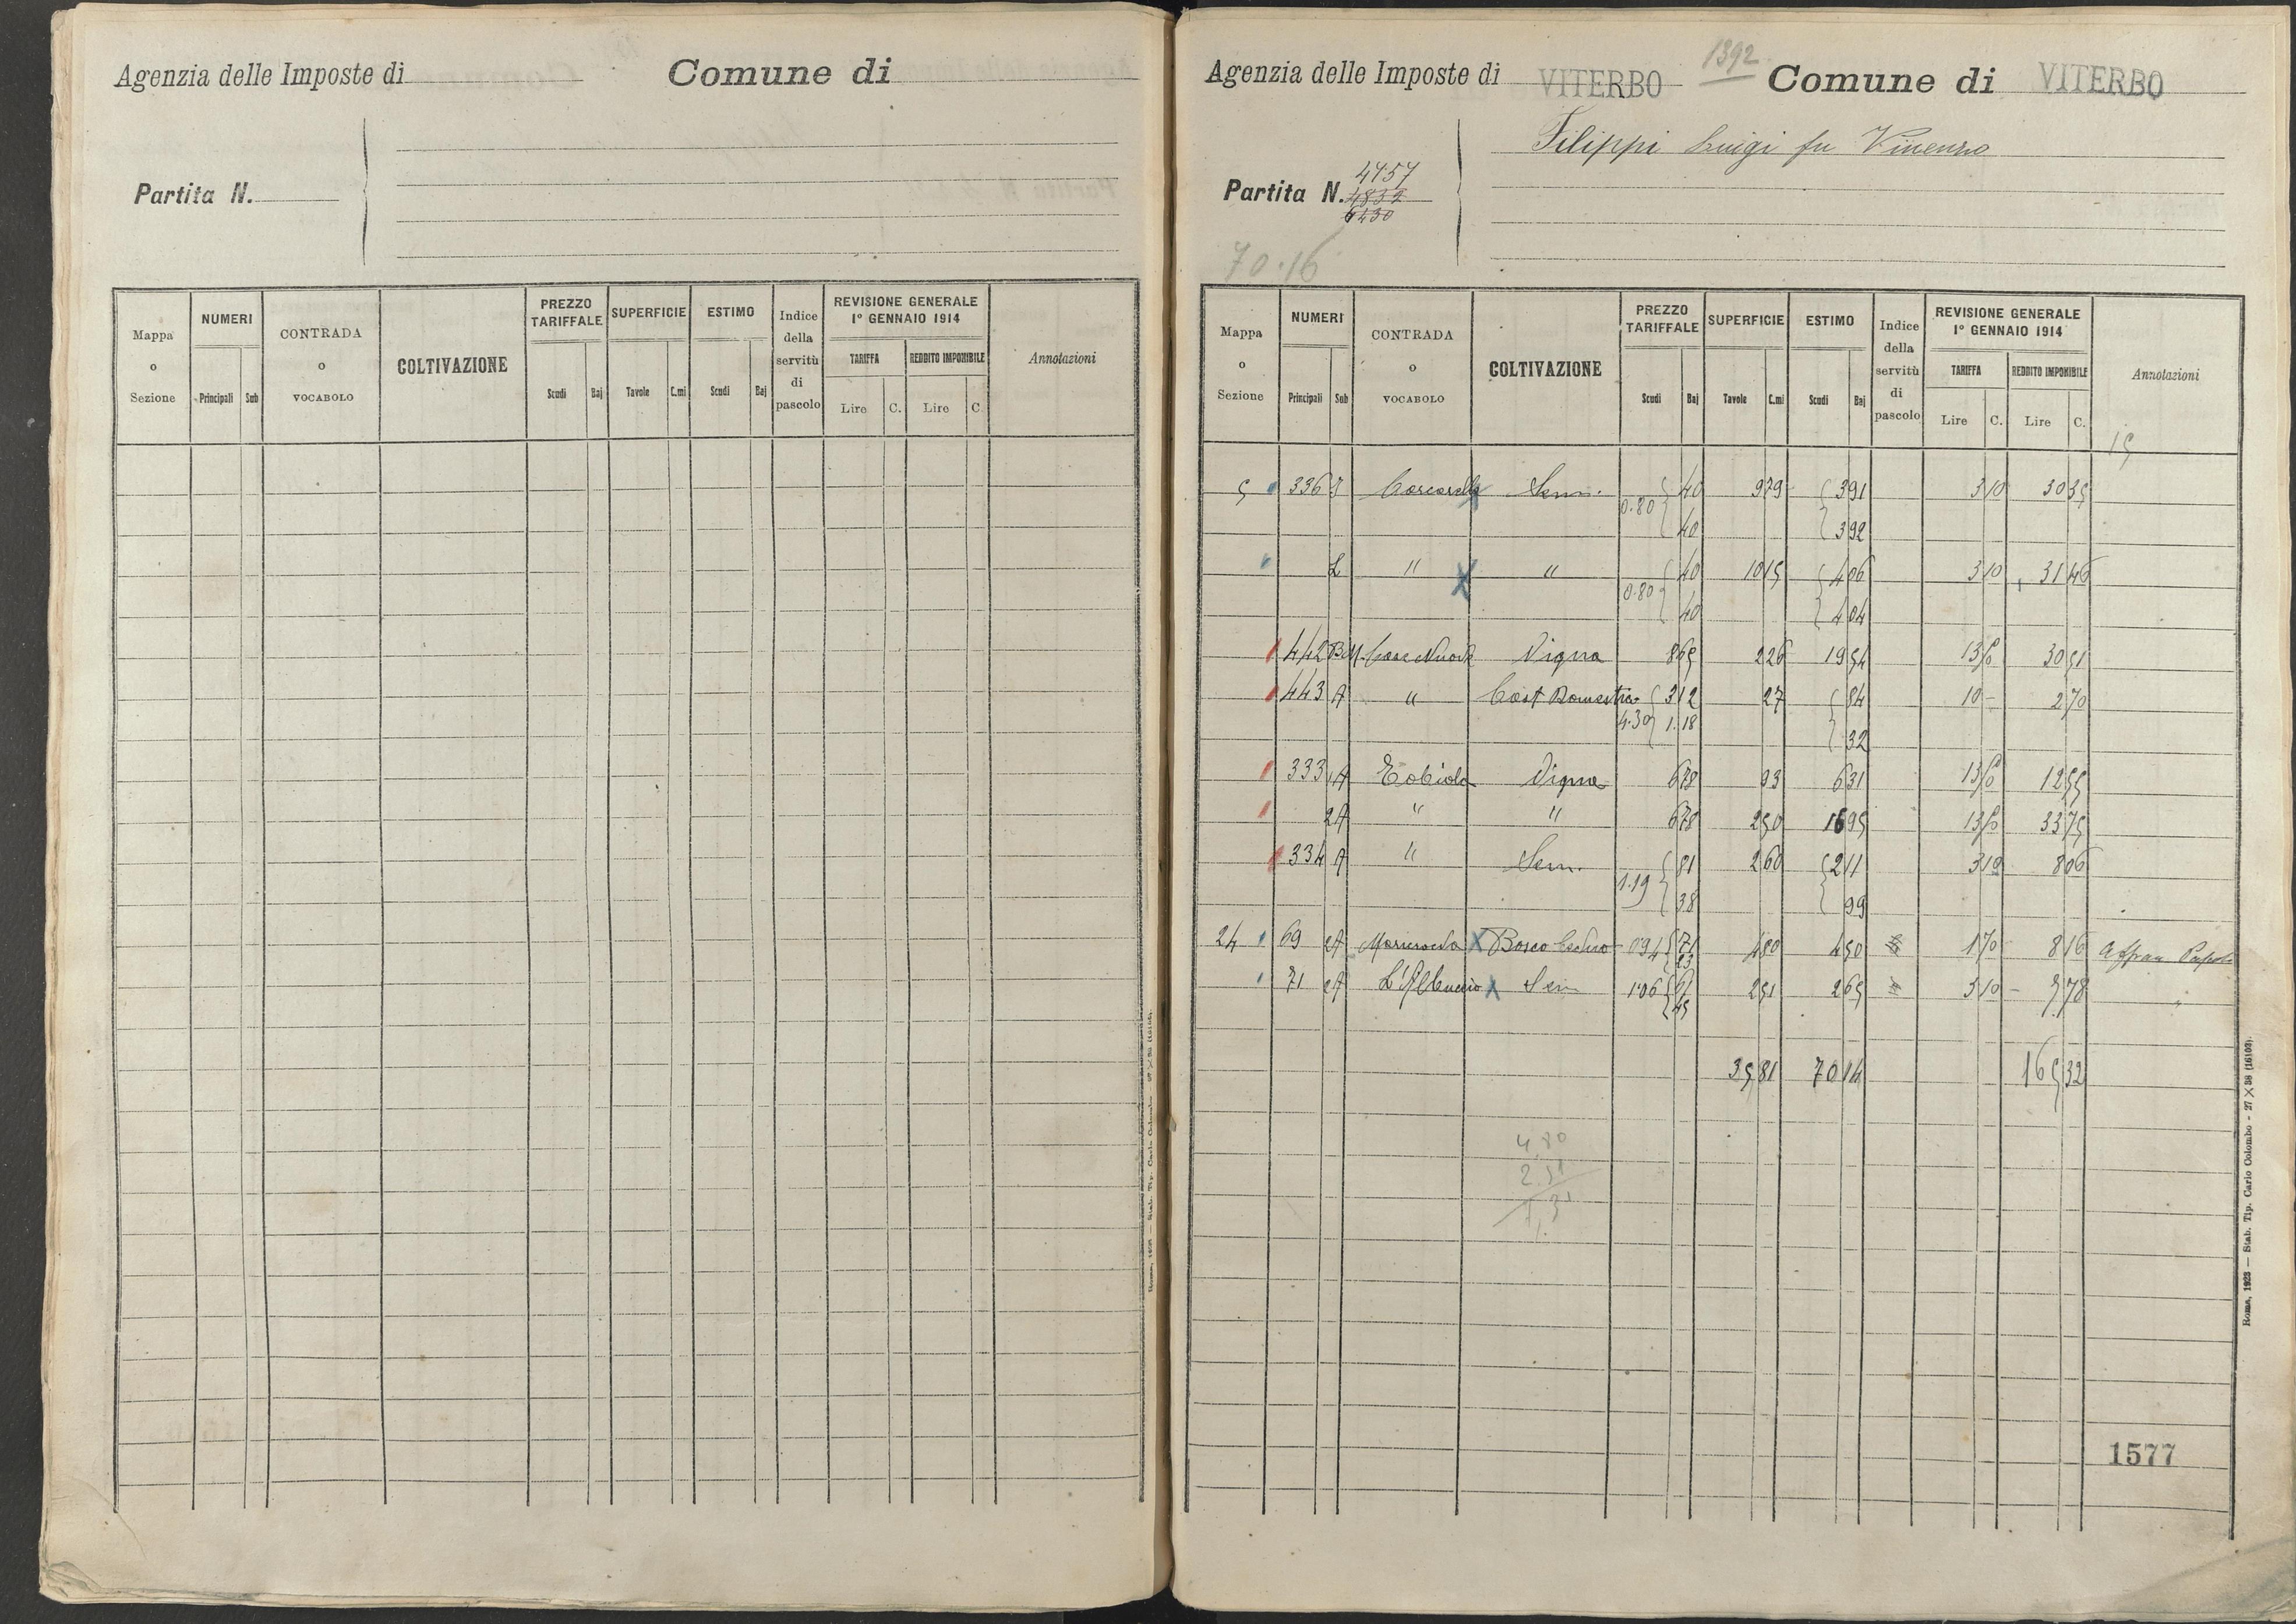 Agenzia delle Imposte di
Comune di
Partita N.
Mappa o Sezione
NUMERI
Principali Sub
CONTRADA o VOCABOLO
COLTIVAZIONE
PREZZO TARIFFALE
Scudi Baj
SUPERFICIE
Tavole C.mi
ESTIMO
Scudi Baj
Indice della servitù di pascolo
REVISIONE GENERALE
1º GENNAIO 1914
TARIFFA
Lire C.
REDDITO IMPONIBILE
Lire C.
Annotazioni
1392
Agenzia delle Imposte di VITERBO Comune di VITERBO
Filippi Luigi fu Vincenzo
4757
Partita N. 4832
6230
70.16
Mappa o Sezione
NUMERI
Principali Sub
CONTRADA o VOCABOLO
COLTIVAZIONE
PREZZO TARIFFALE
Scudi Baj
SUPERFICIE
Tavole C.mi
ESTIMO
Scudi Baj
Indice della servitù di pascolo
REVISIONE GENERALE
1º GENNAIO 1914
TARIFFA
Lire C.
REDDITO IMPONIBILE
Lire C.
Annotazioni
15
5 336 Sem. 0.80 40 979 391 3 10 30 35
40 392
L " " 0.80 40 10 15 4 06 3 10 31 46
40 4 04
442 Case Nuova Vigna 8 65 2 26 19 54 13 50 30 51
443 A " Cast Domestico 3 12 27 84 10 - 2 70
4.30 1.18 32
333 1A Vigna 6 78 93 6 31 13 50 12 55
2A " " 6 78 2 50 16 95 13 50 33 75
334 A " Sem. 1.19 81 2 60 2 11 3 10 8 06
38 99
24 69 2A Bosco Ceduo 0 94 71 4 80 4 50 1 70 8 16 Affran Pascolo
23
71 2A Sem 1.06 61 2 51 2 65 3 10 7 78 "
45
35 81 70 14 165 32
4,80
2.51
1577
Roma, 1923 — Stab. Tip. Carlo Colombo - 27 × 38 (16103).